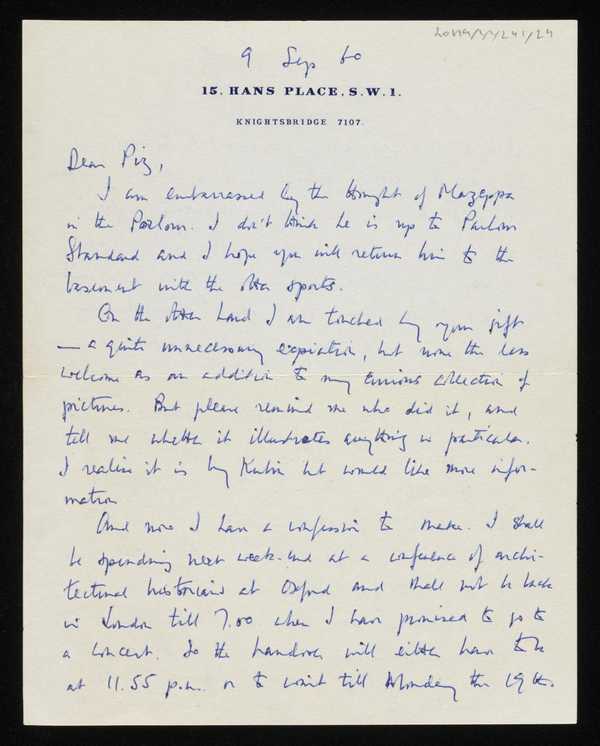 9 Sep 60
15, HANS PLACE, S.W.1.
KNIGHTSBRIDGE 7107.
Dear Piz,
I am embarrassed by the thought of Mazeppa
in the Parlour. I don't think he is up to Parlour
Standard and I hope you will return him to the
basement with the other sports.
On the other hand I am touched by your gift
— a quite unnecessary expiation, but none the less
welcome as an addition to my curious collection of
pictures. But please remind me who did it, and
tell me whether it illustrates anything in particular.
I realise it is by Kubin but would like more infor-
mation
And now I have a confession to make. I shall
be spending next week-end at a conference of archi-
tectural historians at Oxford and shall not be back
in London till 7.00 when I have promised to go to
a concert. So the handover will either have to be
at 11.55 p.m. or to wait till Monday the 19th.